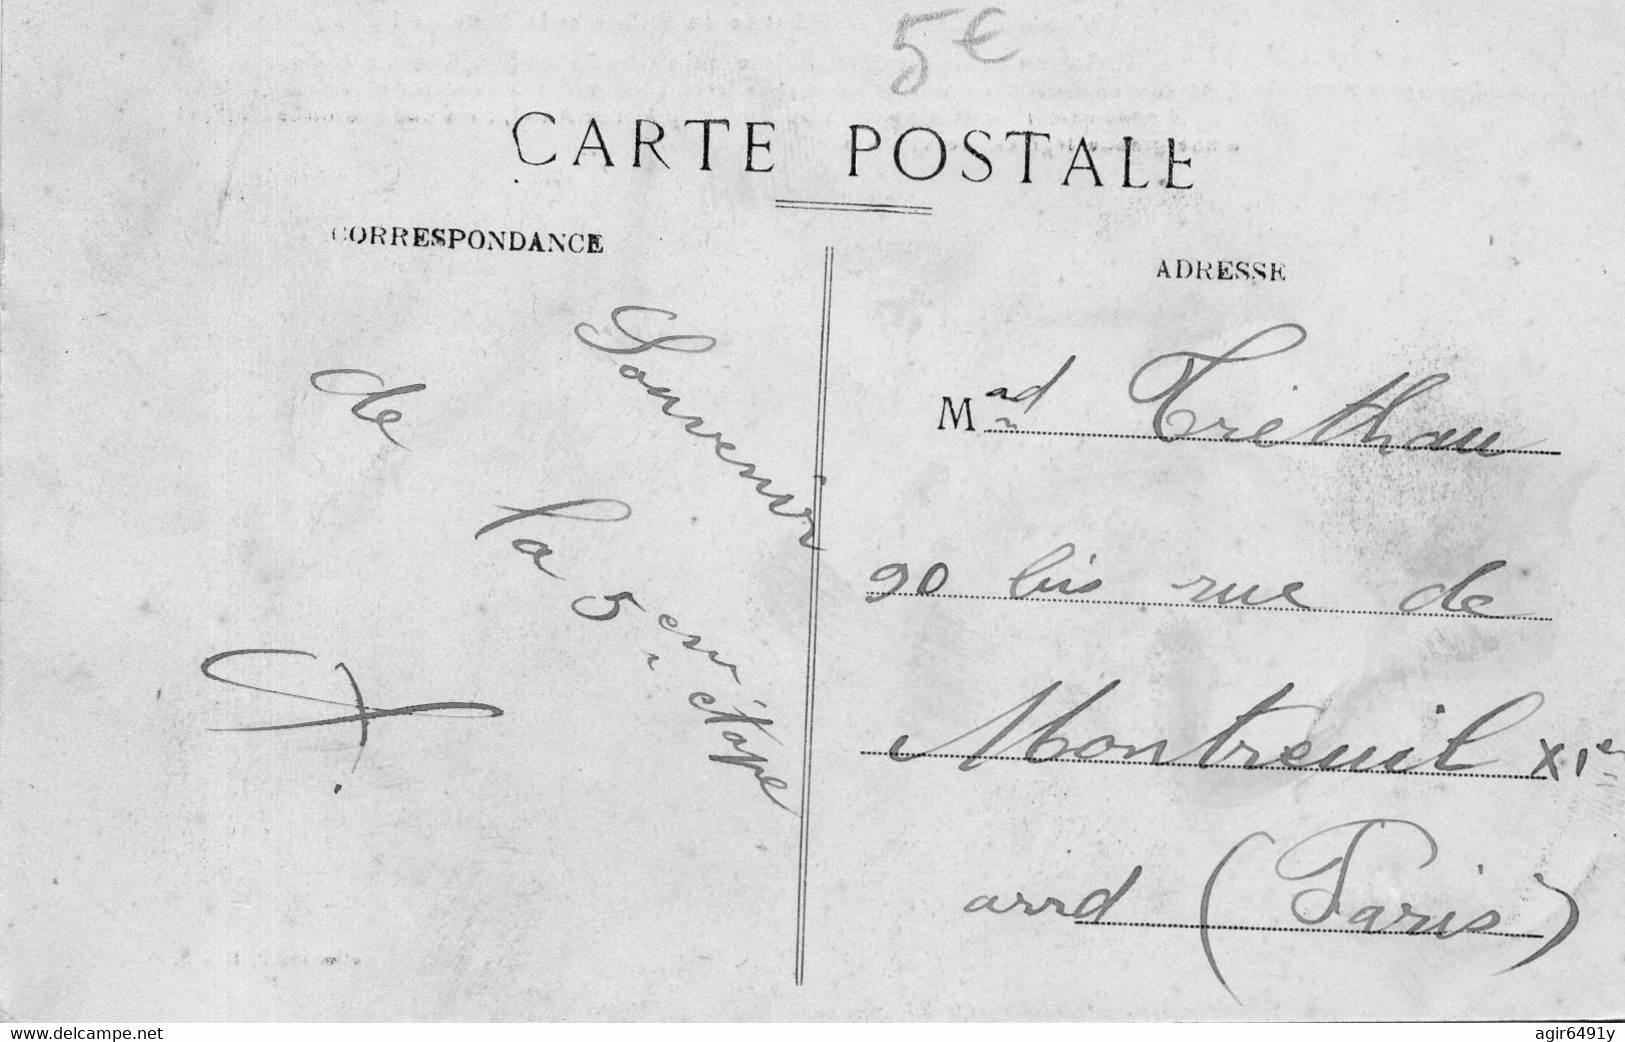 5€
CARTE POSTALE
CORRESPONDANCE
ADRESSE
Souvenir
de
la 5em étape
Mad Tréthau
90 bis rue de
Montreuil XIe
arrd (Paris)
www.delcampe.net
agir6491y